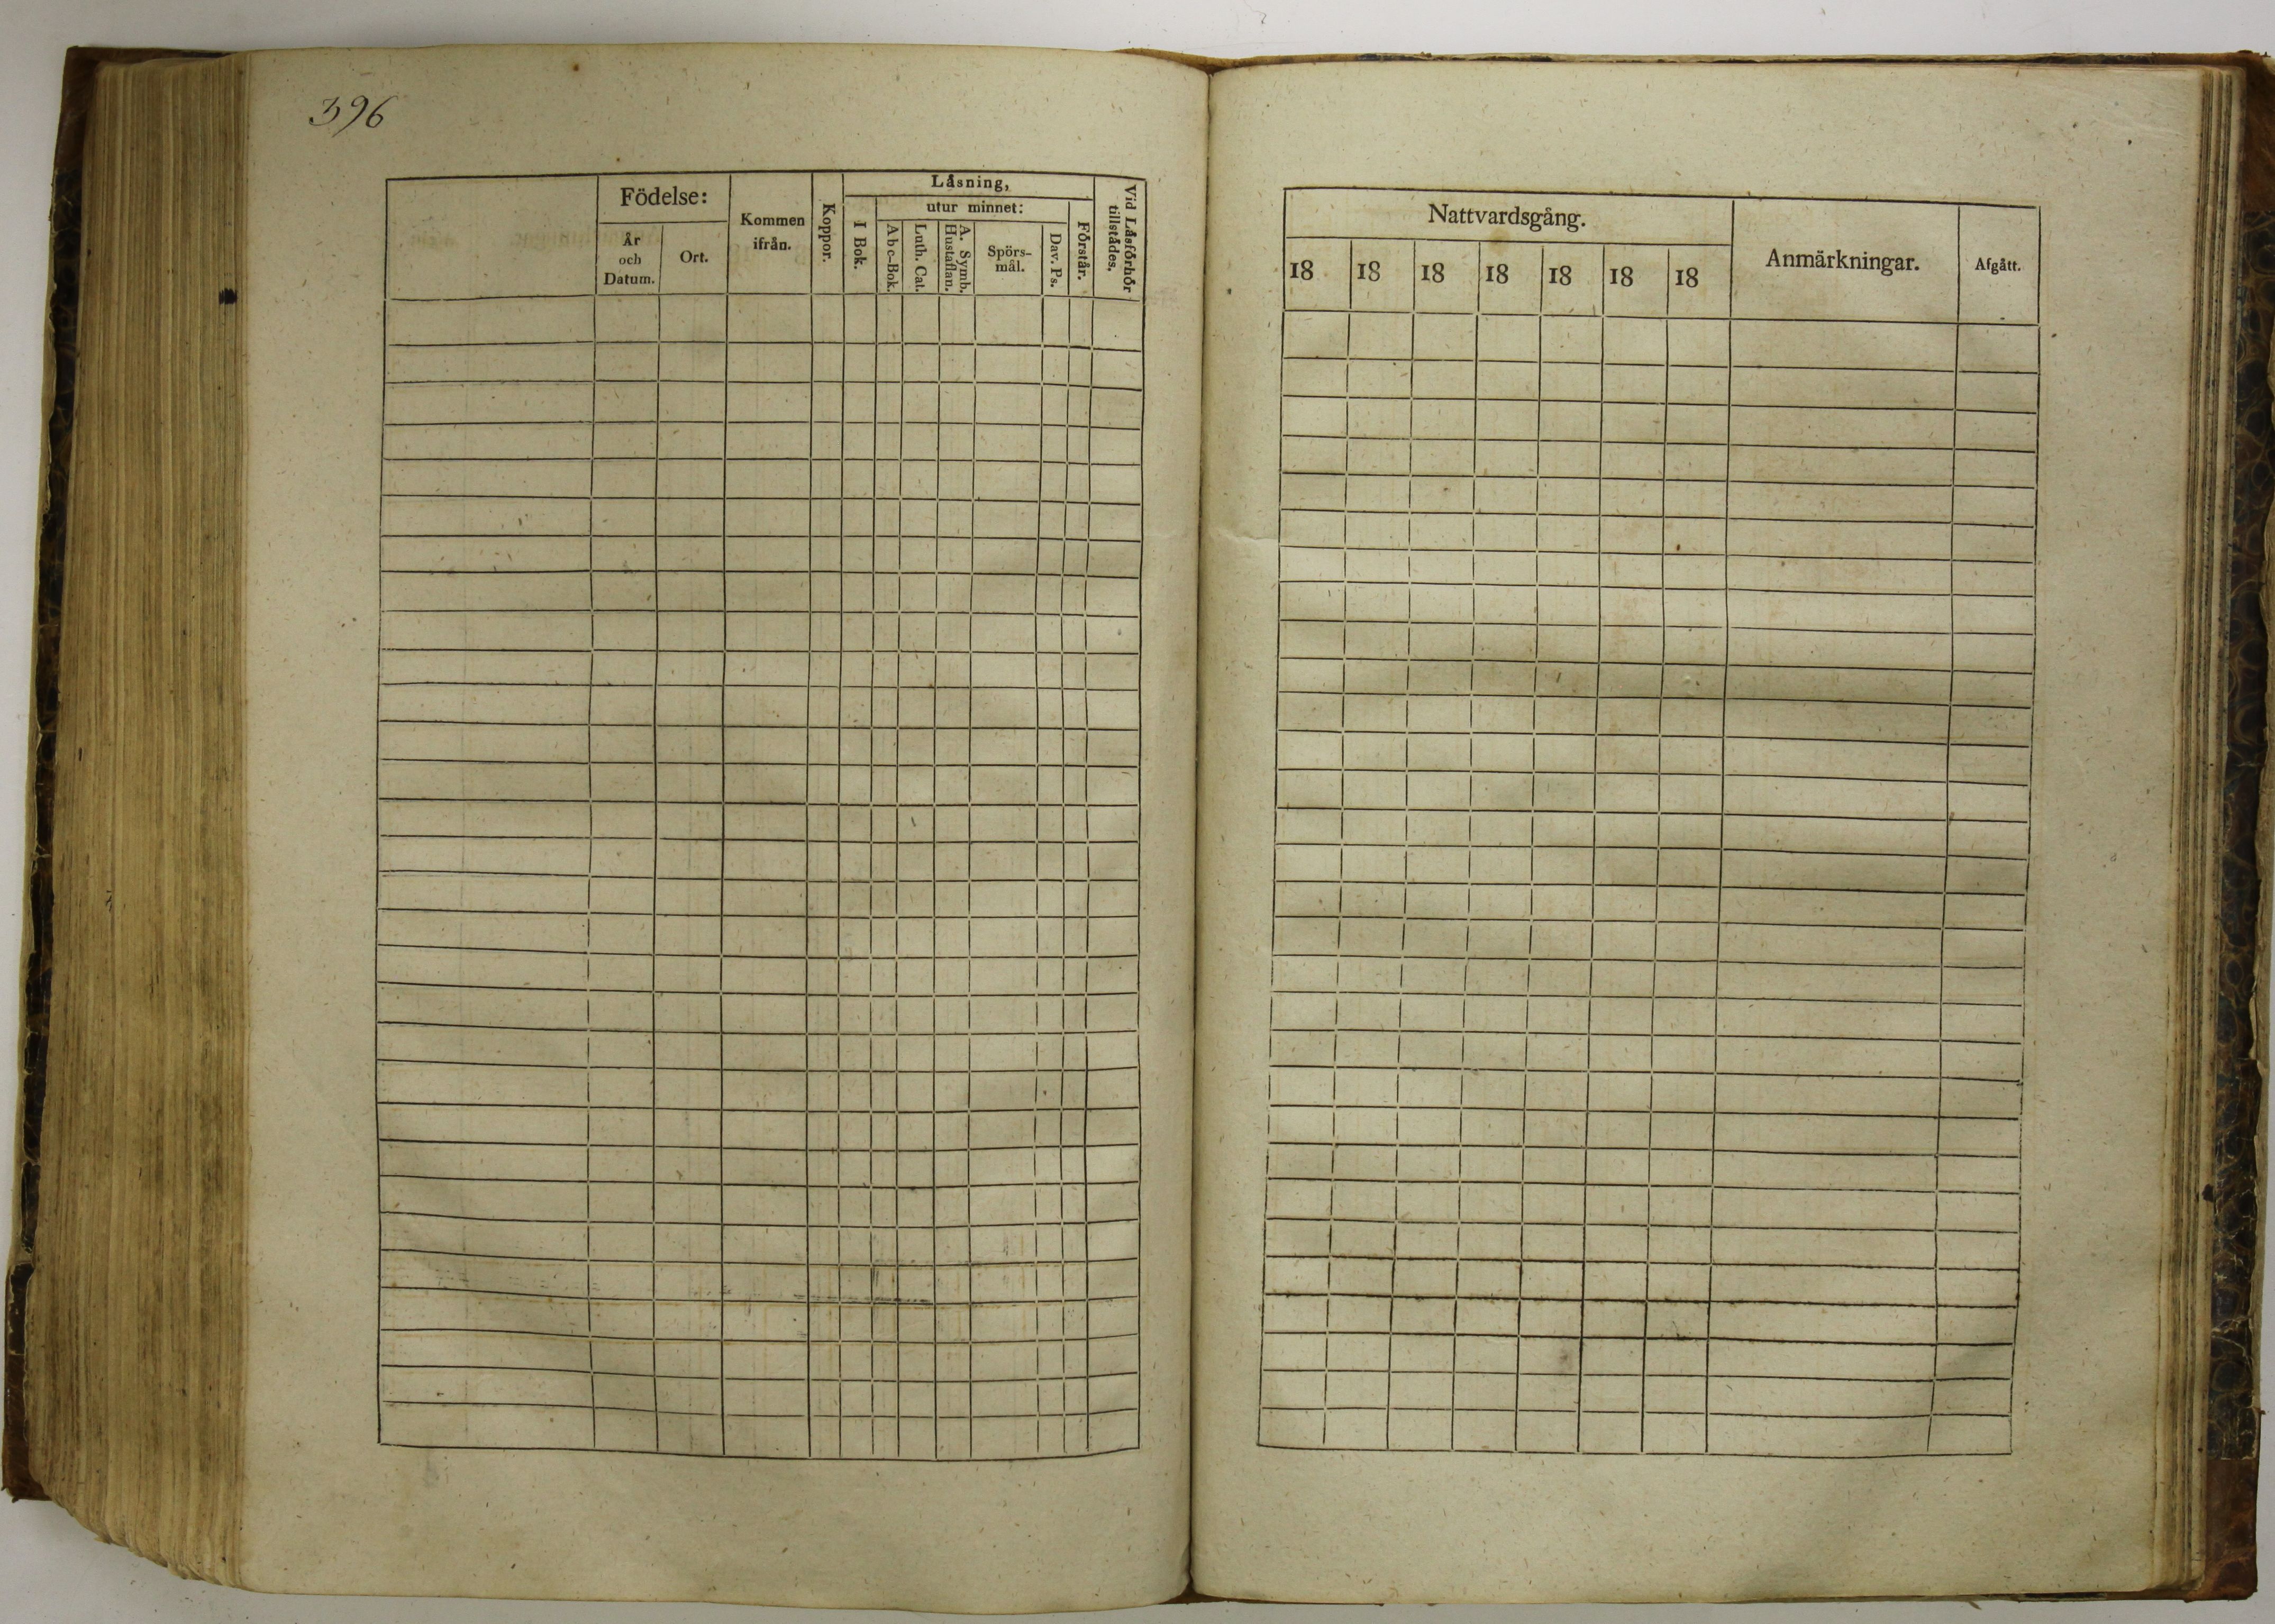 396
Födelse:
År
och
Datum.
Ort.
Kommen
ifrån.
Koppor.
Låsning,
I Bok.
utur minnet:
Abc-Bok.
Luth. Cat.
A. Symb.
Hustaflan.
Spörs-
mål.
Dav. Ps.
Förstår.
Vid Låsförhör
tillstådes.
Nattvardsgång.
18 18 18 18 18 18 18
Anmärkningar.
Afgått.